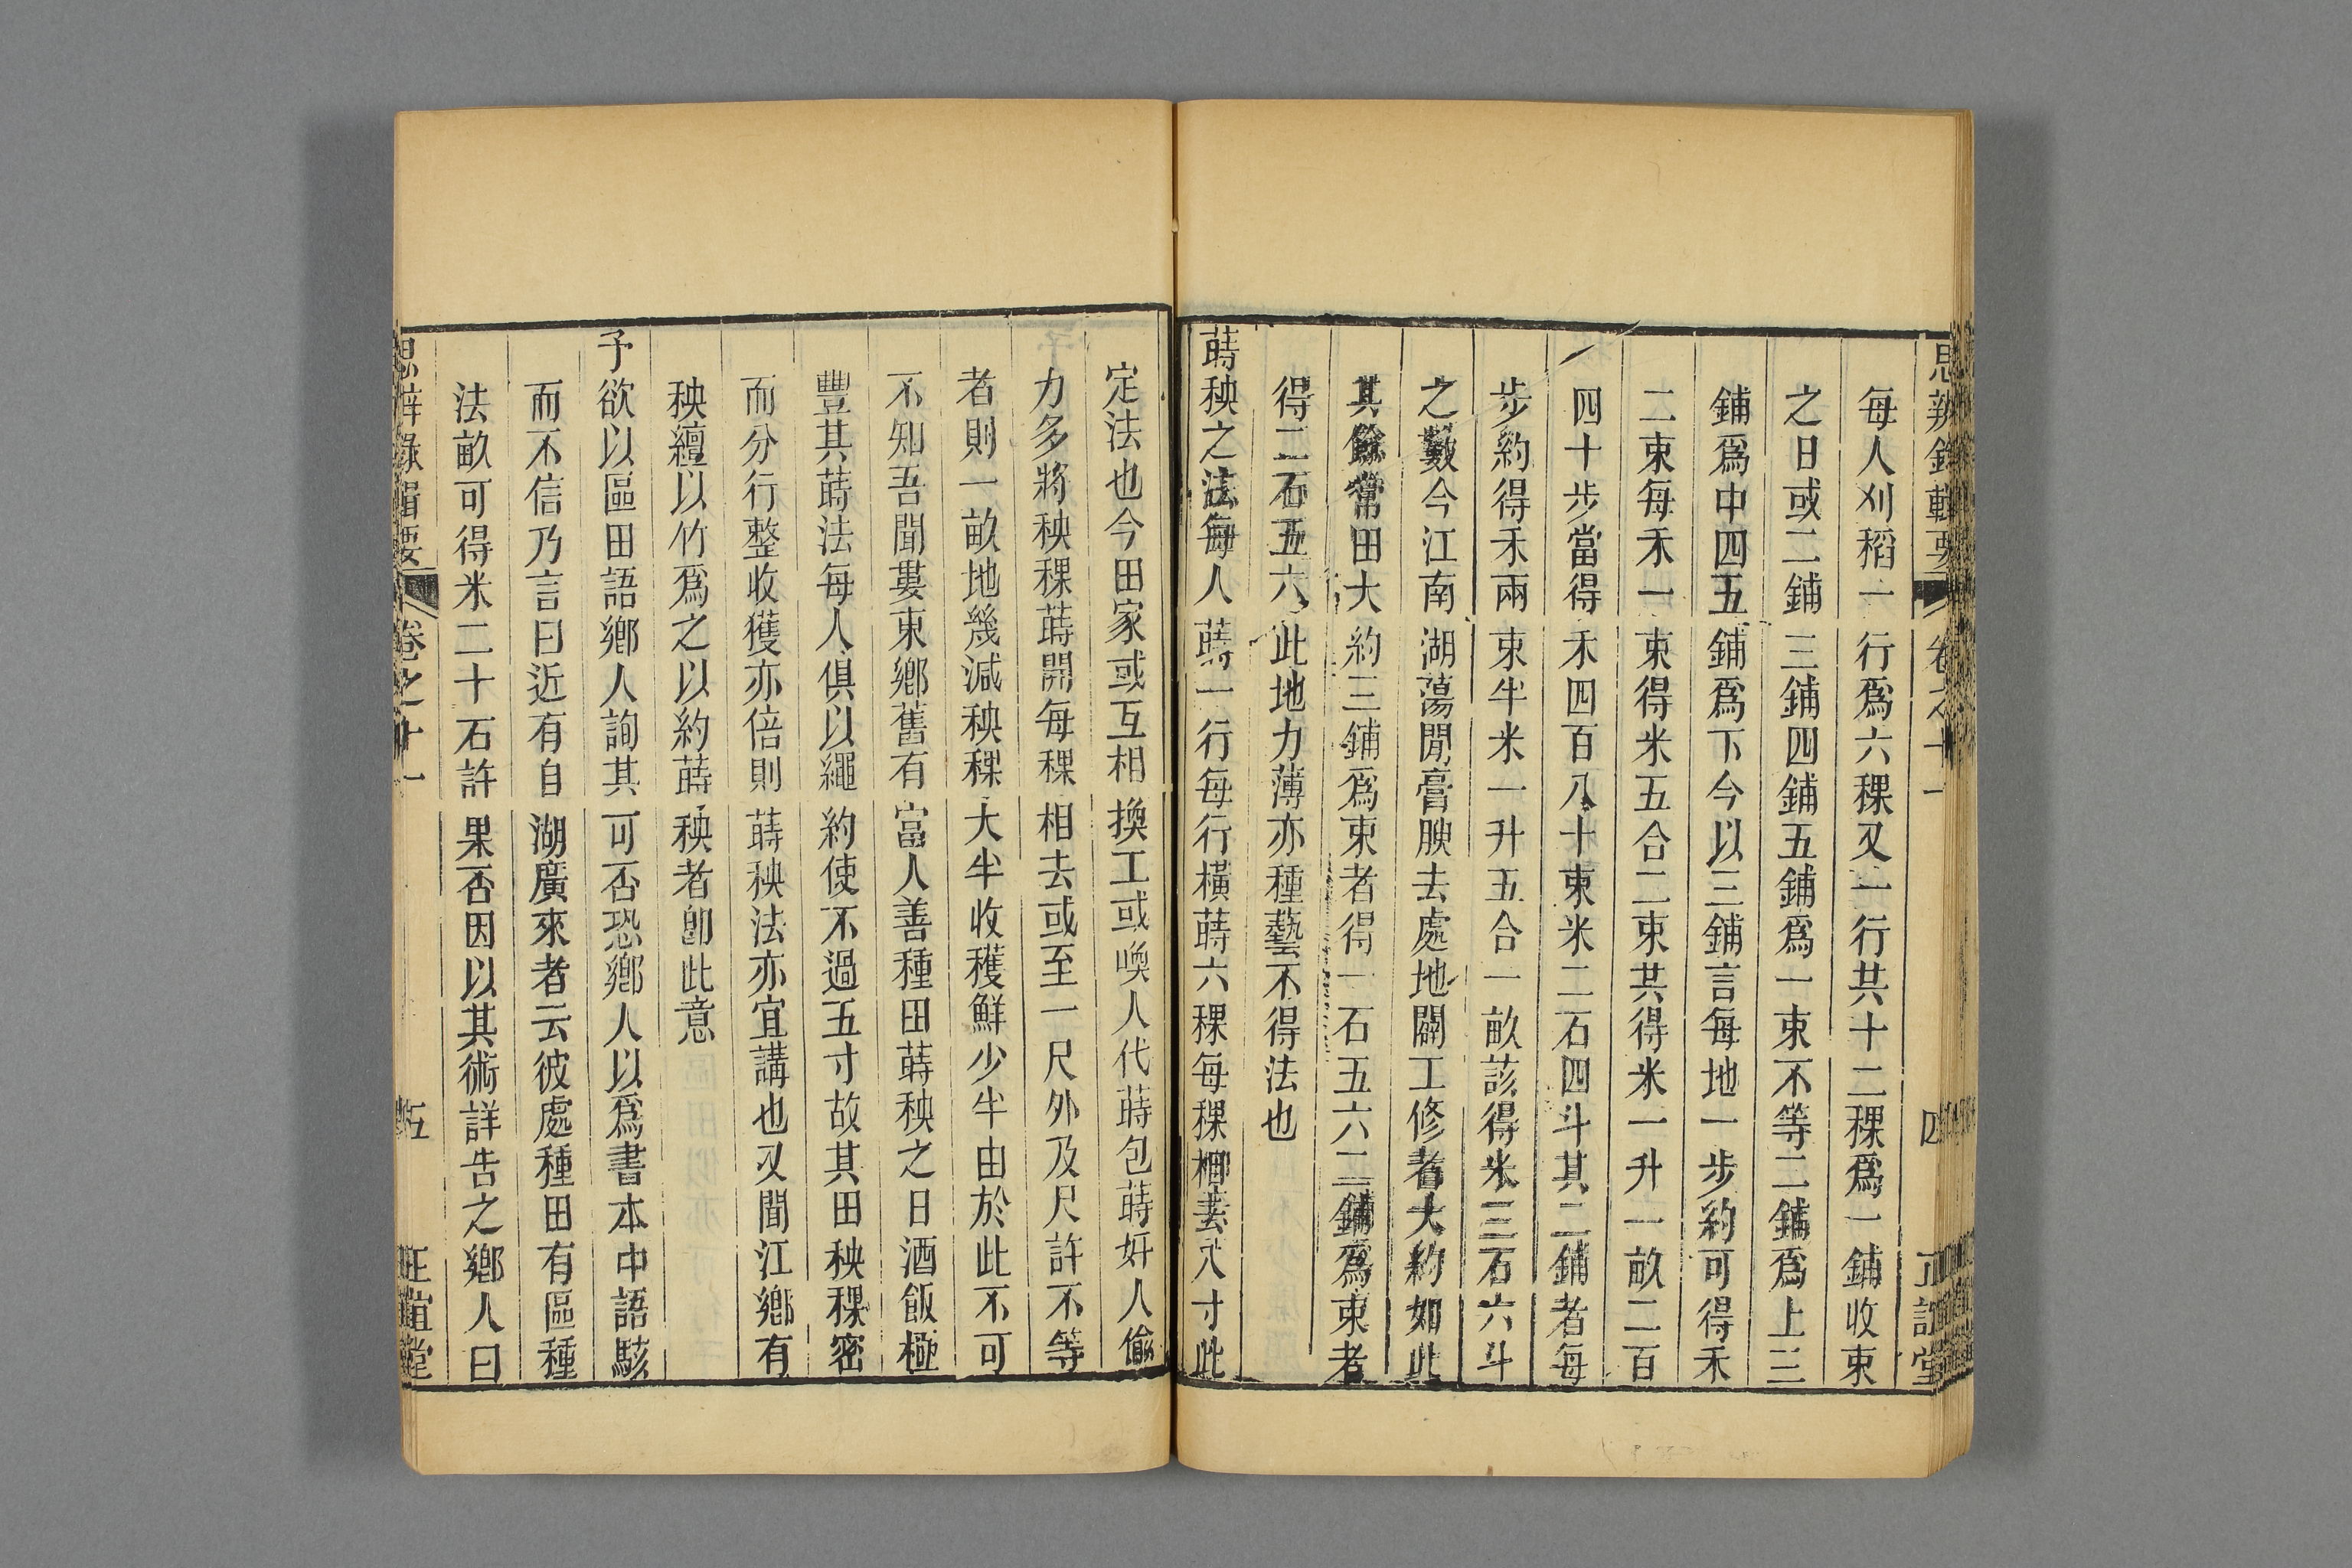 思辨錄輯要 卷之十一 四 正誼堂
每人刈稻一行爲六稞又一行共十二稞爲一鋪收束
之日或二鋪三鋪四鋪五鋪爲一束不等二鋪爲上三
鋪爲中四五鋪爲下今以三鋪言每地一步約可得禾
二束每禾一束得米五合二束共得米一升一畝二百
四十步當得禾四百八十束米二石四斗其二鋪者每
步約得禾兩束半米一升五合一畝該得米三石六斗
之數今江南湖蕩閒膏腴去處地闢工修者大約如此
其餘常田大約三鋪爲束者得一石五六二鋪爲束者
得二石五六此地力薄亦種藝不得法也
蒔秧之法每人蒔一行每行橫蒔六稞每稞相去八寸此
定法也今田家或互相換工或喚人代蒔包蒔奸人偷
力多將秧稞蒔開每稞相去或至一尺外及尺許不等
者則一畝地幾減秧稞大半收穫鮮少半由於此不可
不知吾聞婁東鄉舊有富人善種田蒔秧之日酒飯極
豐其蒔法每人俱以繩約使不過五寸故其田秧稞密
而分行整收獲亦倍則蒔秧法亦宜講也又聞江鄉有
秧繵以竹爲之以約蒔秧者卽此意
予欲以區田語鄉人詢其可否恐鄉人以爲書本中語駭
而不信乃言曰近有自湖廣來者云彼處種田有區種
法畝可得米二十石許果否因以其術詳告之鄉人曰
思辨錄輯要 卷之十一 五 正誼堂